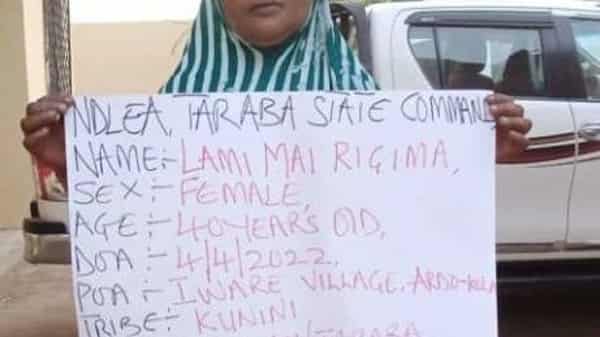 NDLEA, TARABA STATE COMMAND
NAME:- LAMI MAI RIGIMA,
SEX:- FEMALE,
AGE:- 40YEAR'S OlD,
DOA:- 4/4/2022.
POA:- IWARE VILLAGE, ARDO-KOLA
TRIBE:- KUNINI
TARABA